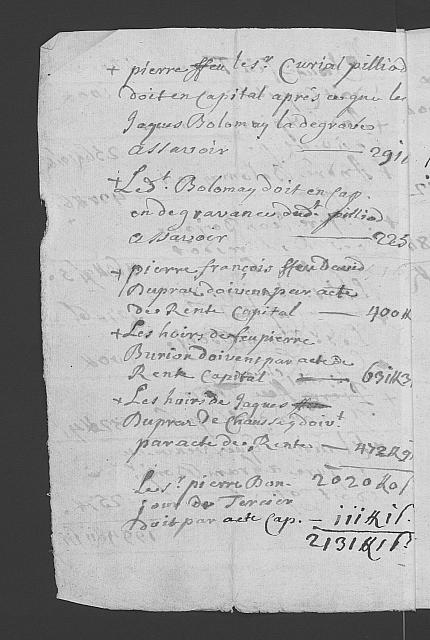 + pierre ffeu le sr. Curial pilliod
doit en Capital aprés ce que le
Jaques Bolomay la degraves
assavoir
+ Le st. Bolomay doit en Cap.
en degravance dudt. pilliod
assavoir 225
+ pierre françois ffeu david
Dupraz doivent par acte
de Rente Capital 400 K
+ Les hoirs de feu pierre
Burion doivent par acte de
Rente Capital
+ Les hoirs de Jaques
Dupraz de Chaussey doivt.
par acte de Rente
2020 K 0 s
Le sr. pierre Bon-
jour de Tercier
doit par acte Cap. 111 K 1 s.
2131 K 1 s